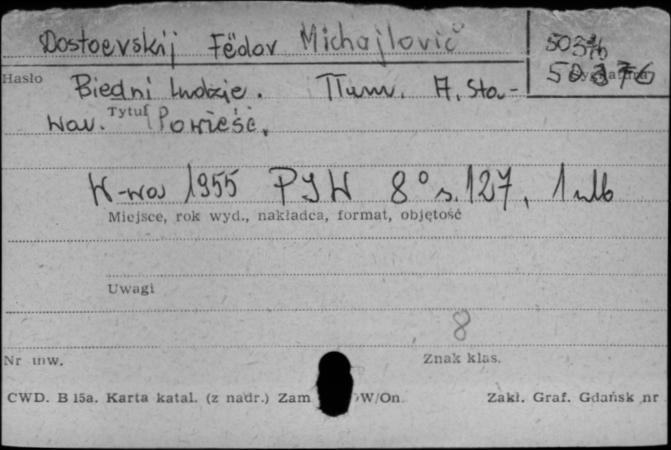 Dostoevskij Fëdor Michajlovič
50376
Hasło Biedni ludzie. Tłum. A. Sta-
50376
Tytuł
waw. Powieść.
W-wa 1955 PIW 8° s. 127, 1 nlb
Miejsce, rok wyd., nakładca, format, objętość
Uwagi
8
Nr inw. Znak klas.
CWD. B 15a. Karta katal. (z nadr.) Zam W/On. Zakł. Graf. Gdańsk nr